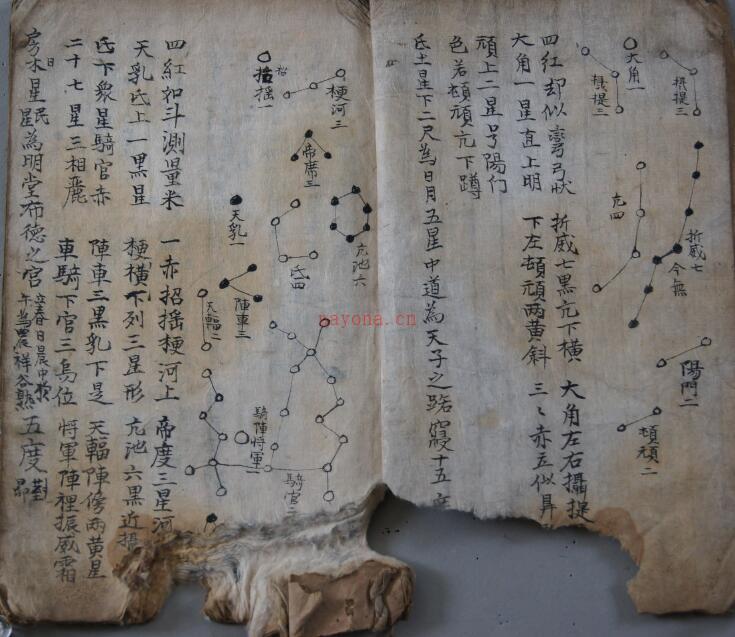 大角一
攝提三
攝提三
亢四
折威七
今無
陽門二
頓頑二
四紅却似彎弓狀 折威七黑亢下橫 大角左右攝提
大角一星直上明 下左頓頑兩黃斜 三三赤立似鼎
頑上二星号陽门
色若頓頑亢下蹲
氐土星下二尺為日月五星中道為天子之路寢十五度
招摇一
梗河三
帝席三
亢池六
氐四
天乳一
陣車三
天輻二
騎陣將軍一
騎官二
四紅如斗測量米 一赤招摇梗河上 帝度三星河
天乳氐上一黑星 梗橫下列三星形 亢池六黑近摂
氐下眾星騎官赤 陣車三黑乳下是 天輻陣傍兩黃星
二十七星三相麗 車騎下官三烏位 將軍陣裡振威霜
房日星為明堂布德之官 立春日晨中
午為農祥谷熟 五度
nayona.cn